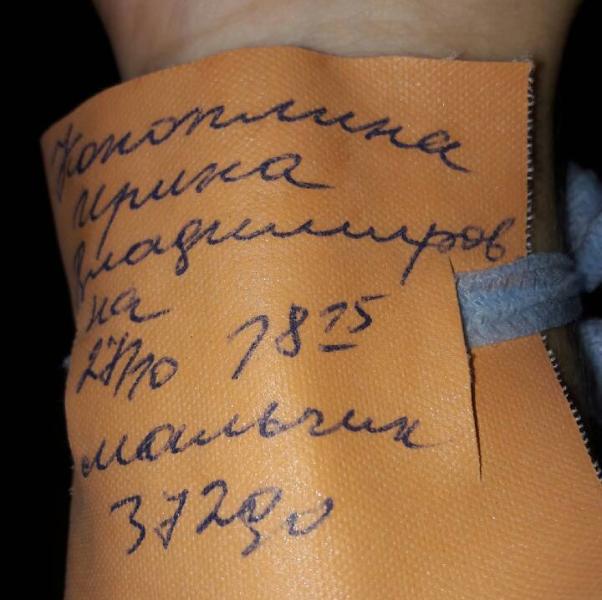 Коноплина
ирина
владимиров
на
27/10 18 15
мальчик
3720